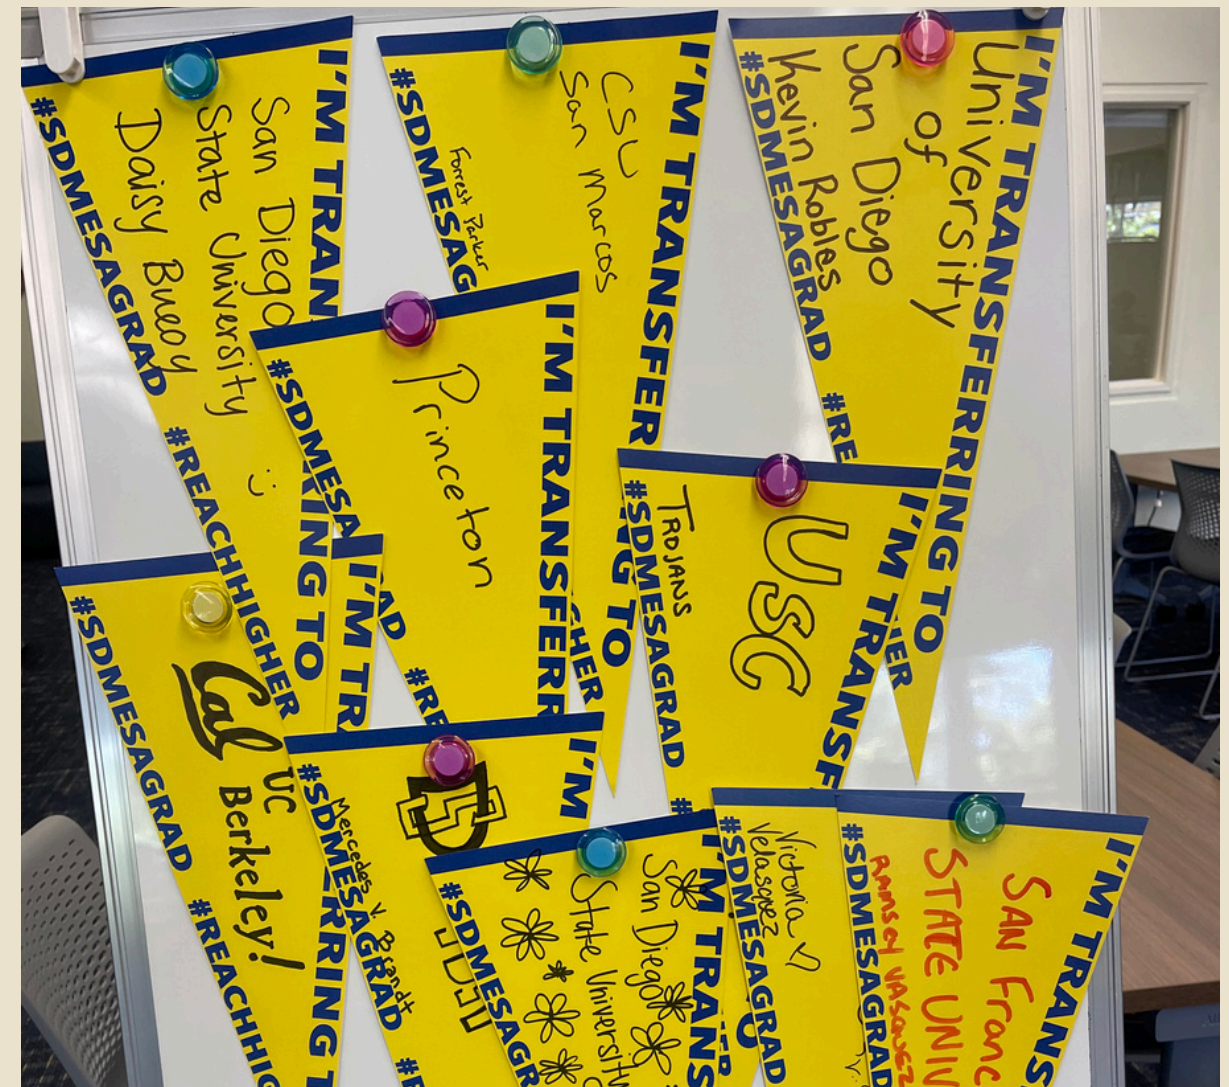 I'M TRAN
San Diego
State University
Daisy Bueoy
:)
#SDMESAGRAD #REACHHIGHER
RING TO
I'M TRANSFER
CSU
San Marcos
Forrest Parker
#SDMESAG
NG TO
GHER
I'M TRANSFERRING TO
University
of
San Diego
Kevin Robles
#SDMESAGRAD #RE
HER
I'M TRANSFERR
Princeton
#SDMESA
AD #RE
I'M TRANSF
USC
TROJANS
#SDMESAGRAD #
I'M TR
RRING T
Cal UC
Berkeley!
#SDMESAGRAD #REACHHIG
I'M
SD
Mercedes V. Brandt
#SDMESAGRAD #
I'M TRANS
San Diego
State University
#SDMESAGR
Victoria
Velasquez
#SDMESAGRAD
I'M TRANS
SAN Franc
STATE UNIV
RAMSEY VASQUEZ
#SDMESAGRAD